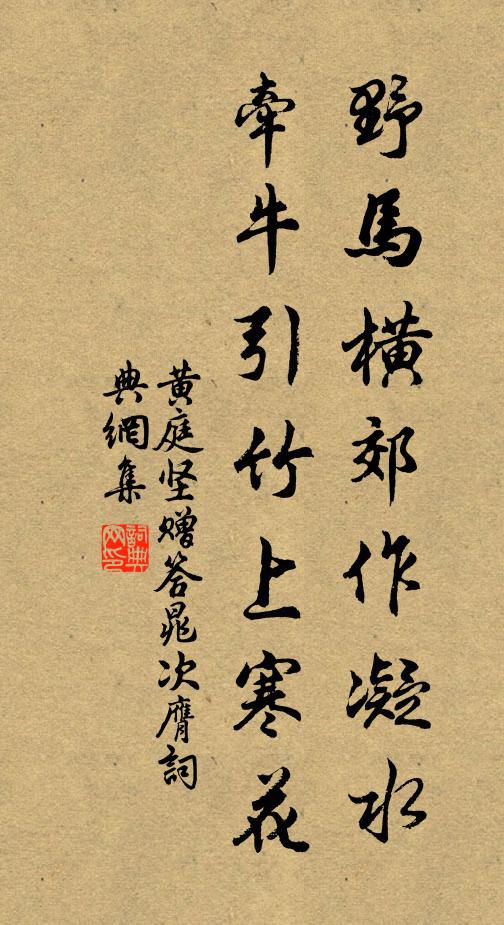 野馬橫郊作凝水
牽牛引竹上寒花
黄庭坚贈答晁次膺詞
典網集
詞典網印